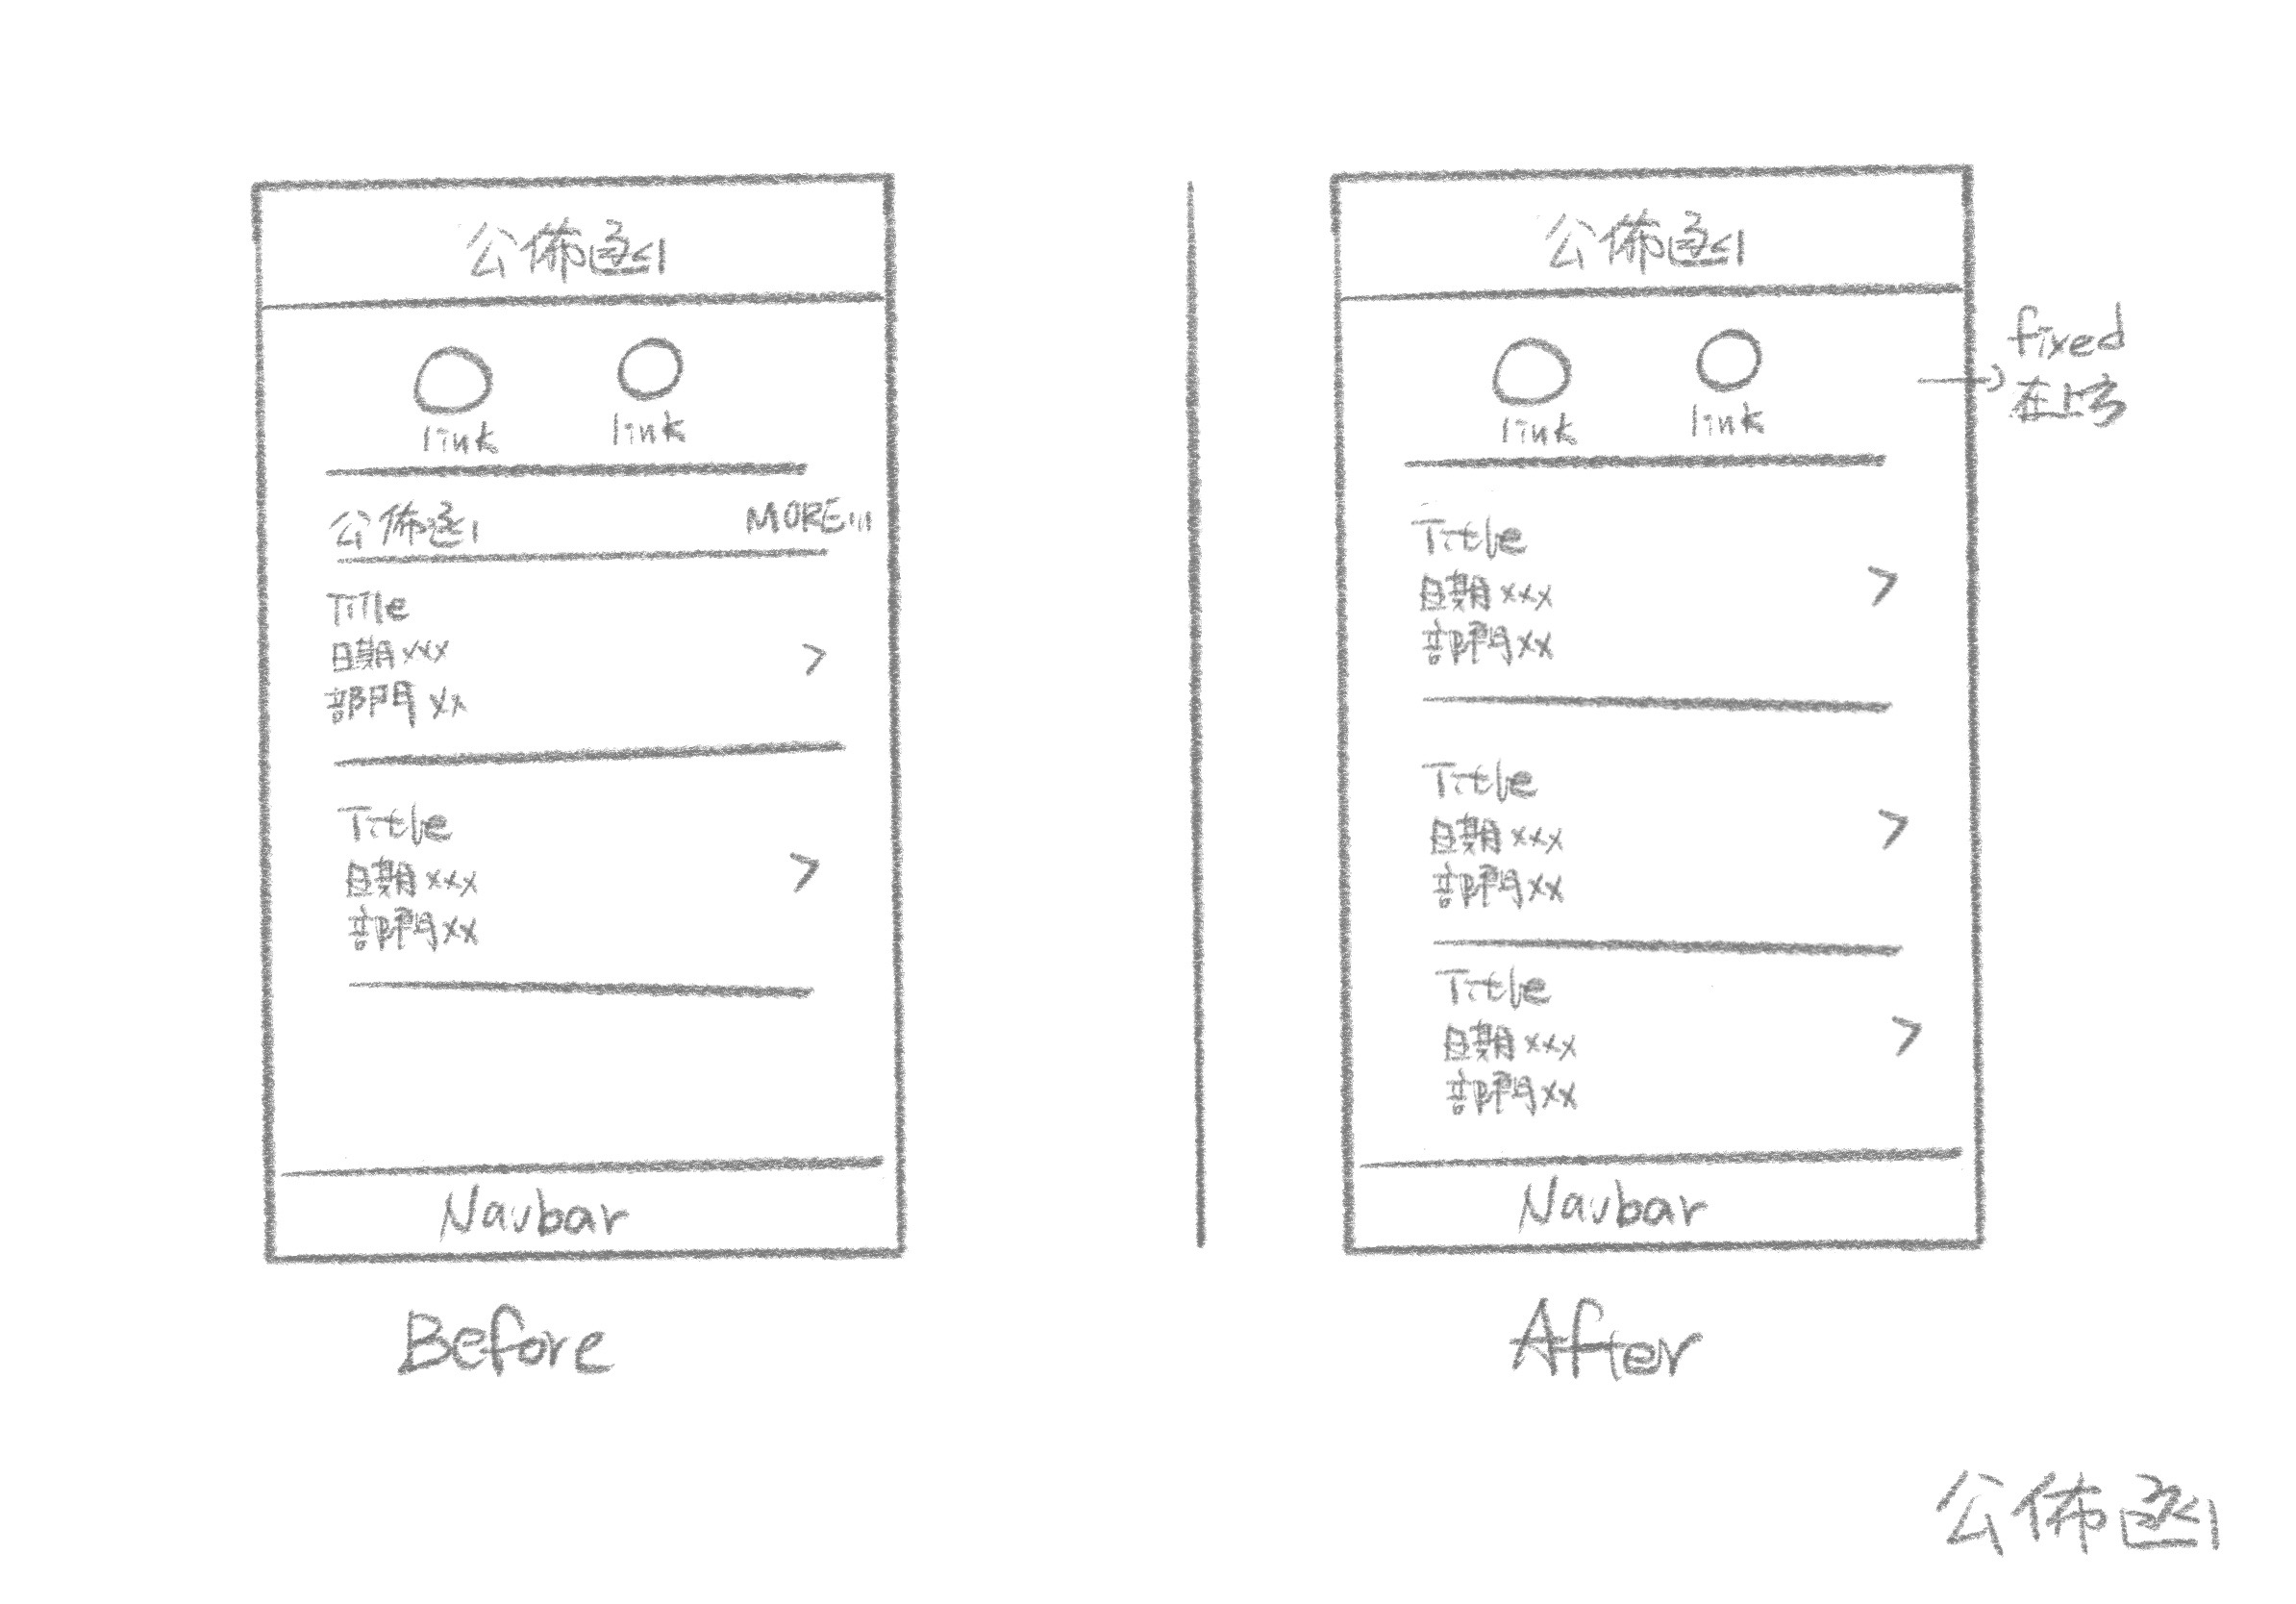 公佈函
link
link
公佈函 MORE...
Title
日期 xxx
部門 xx
>
Title
日期 xxx
部門 xx
>
Navbar
Before
公佈函
link
link
fixed
在上方
Title
日期 xxx
部門 xx
>
Title
日期 xxx
部門 xx
>
Title
日期 xxx
部門 xx
>
Navbar
After
公佈函